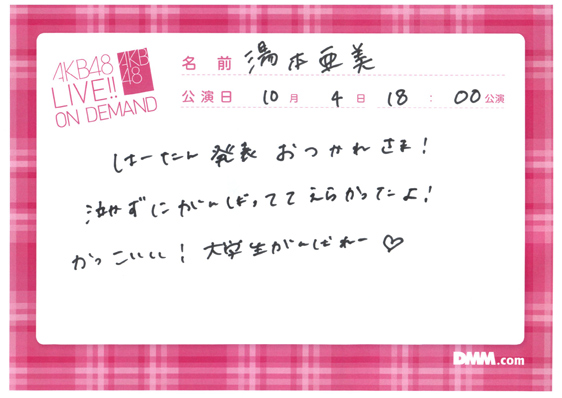 AKB48
LIVE!!
ON DEMAND
AKB
48
名前 湯本亜美
公演日 10月 4日 18:00公演
はーたん 発表 おつかれさま!
泣かずにがんばっててえらかったよ!
かっこいい! 大学生がんばれー♡
DMM.com